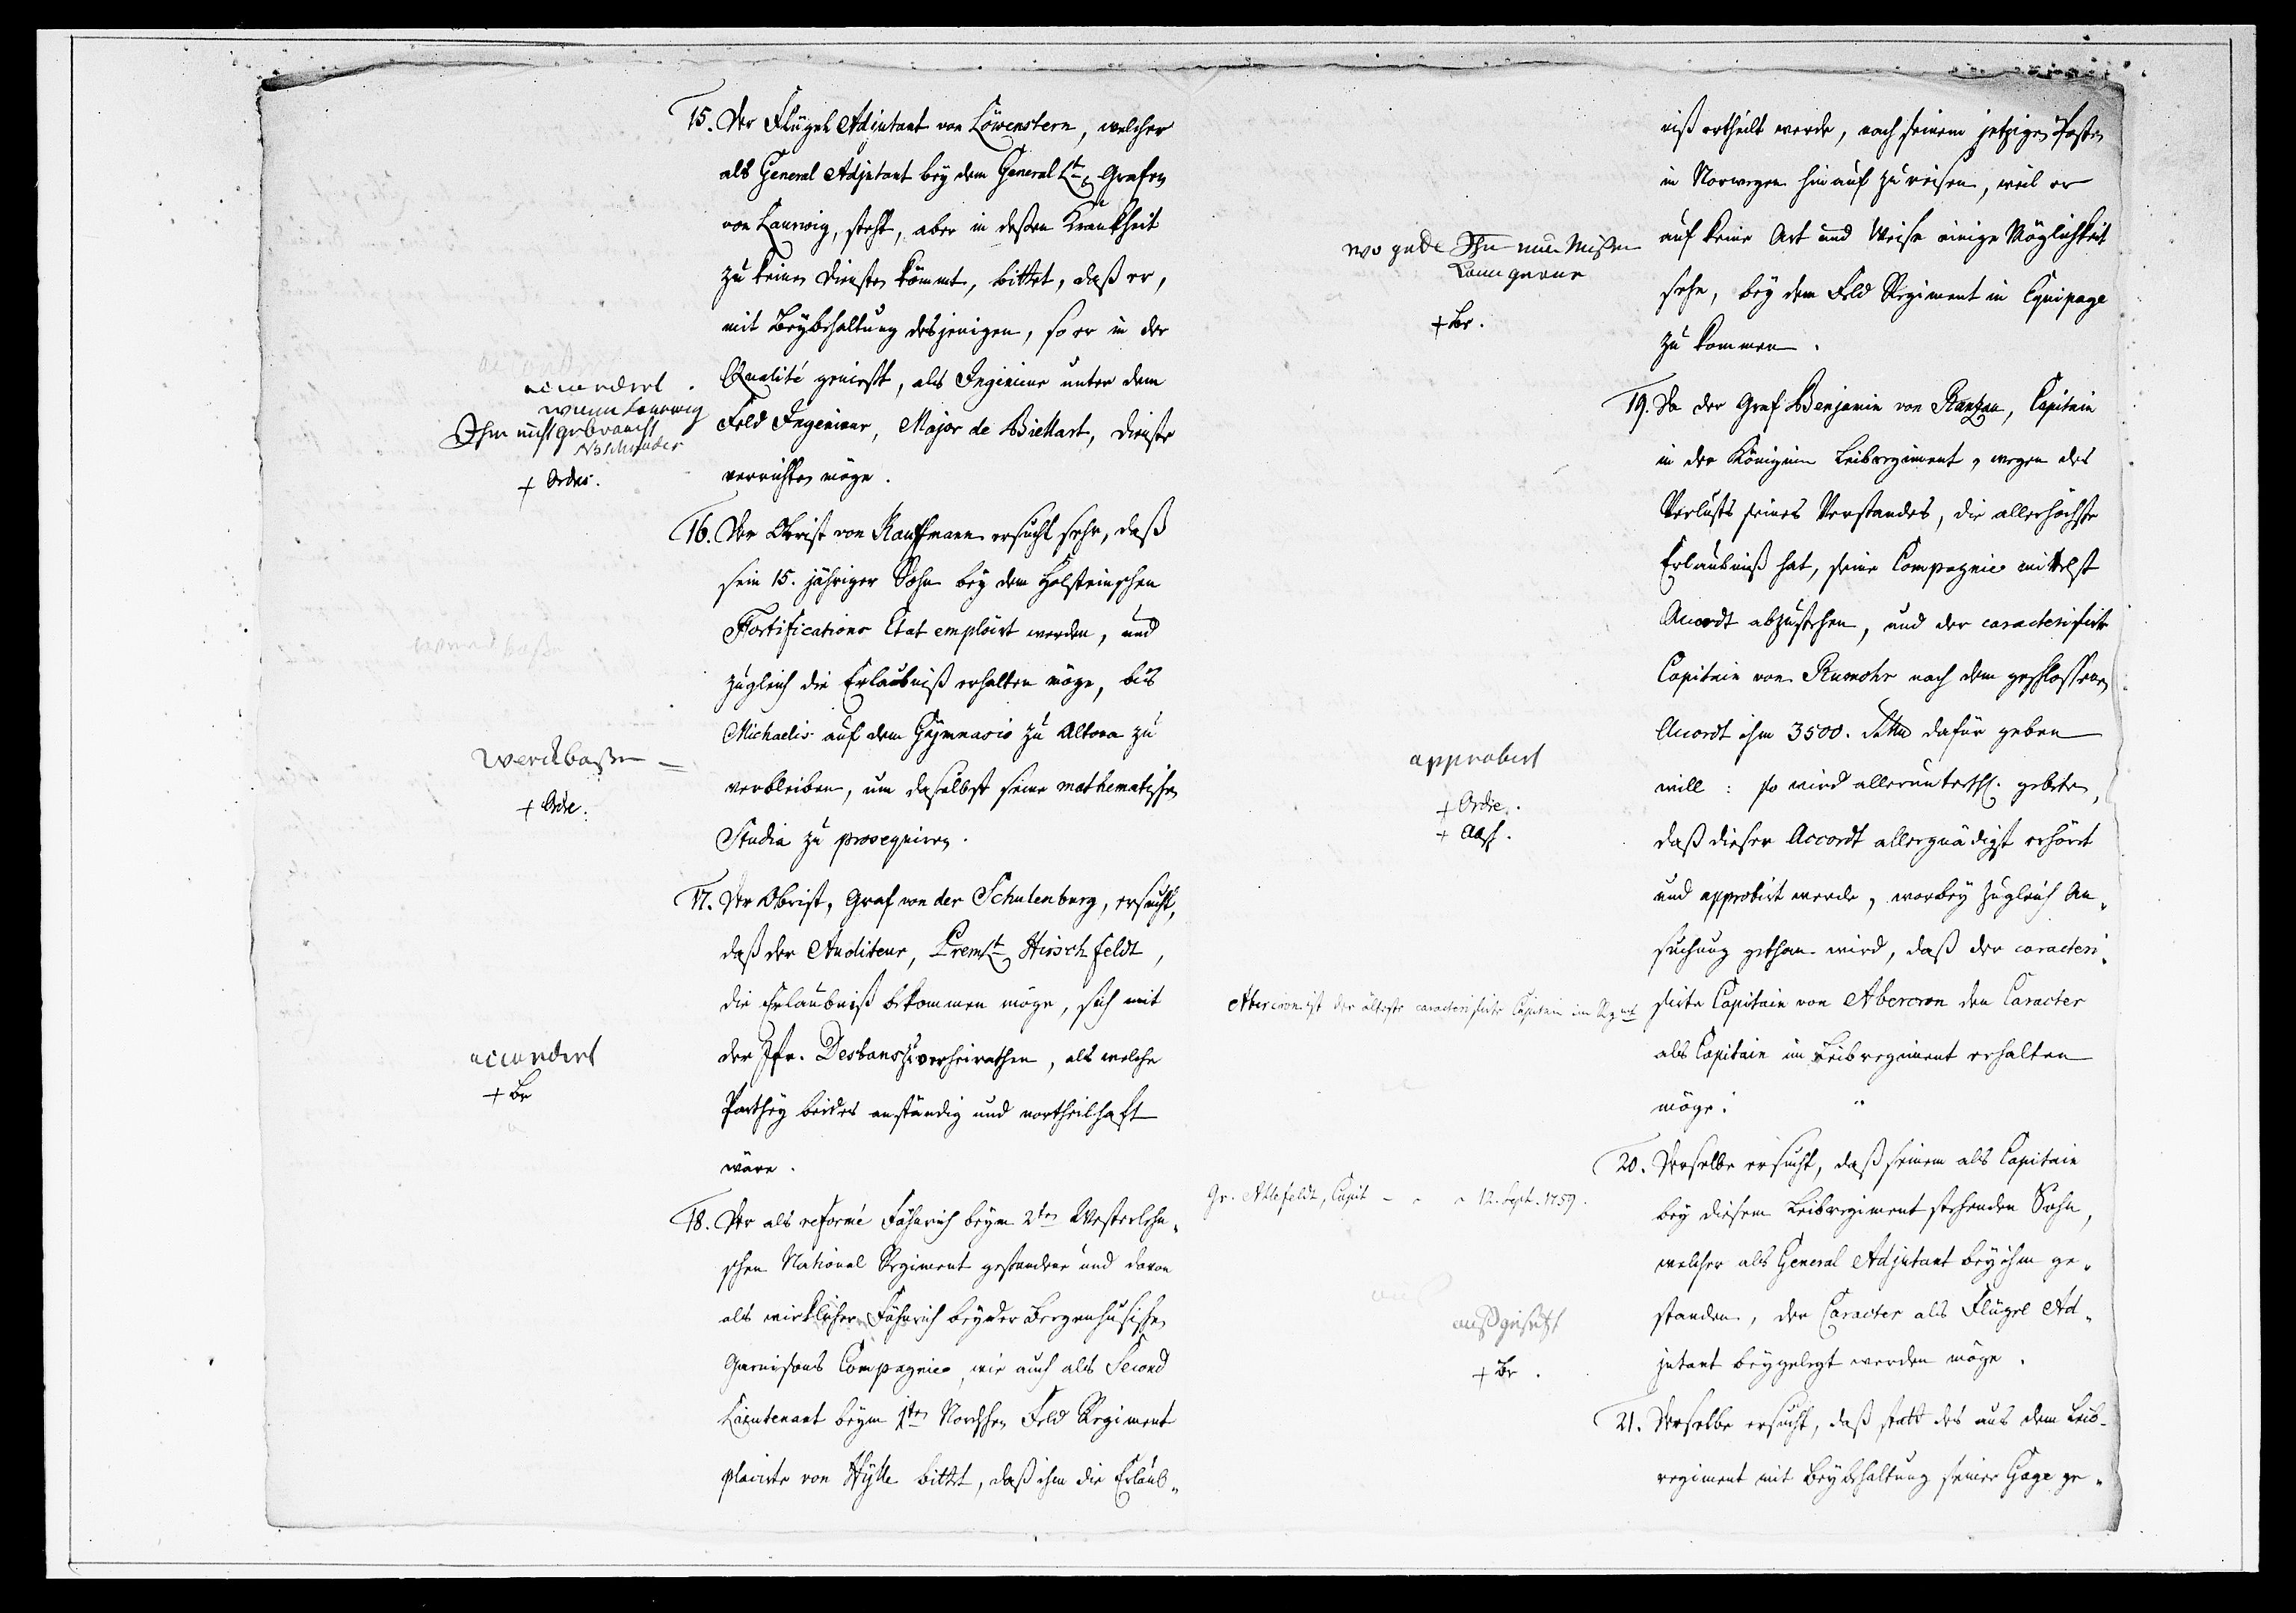 15. Der Flügel Adjutant von Löwenstern, welcher
als General Adjutant bey dem General Lt. Grafen
von Laurwig, steht, aber in deßen Krankheit
zu keinen Diensten kömmt, bittet, daß er,
mit Beybehaltung desjenigen, so er in der
Qualité genießt, als Ingenieur unter dem
Feld Ingenieur, Major de Biellart, Dienste
verrichten möge.
accordert.
wenn Laurwig
Ihn nicht gebraucht
+ Ordre.
16. Der Obrist von Kauffmann ersucht sehr, daß
sein 15. jähriger Sohn bey dem Holsteinschen
Fortifications Etat emploirt werden, und
zugleich die Erlaubniß erhalten möge, bis
Michaelis auf dem Gymnasio zu Altona zu
verbleiben, um daselbst seine mathematische
Studia zu prosequiren.
+ Ordre.
17. Der Obrist, Graf von der Schulenburg, ersucht,
daß der Auditeur, Prem Lt. Hirschfeldt,
die Erlaubniß bekommen möge, sich mit
der Jfr. Desbans zu verheirathen, als welche
Parthey beides anständig und vortheilhaft
wäre.
accordert
+ Br
18. Der als reformé Fähnrich beym 2ten Westerlehn-
schen National Regiment gestandene und davon
als wirklicher Fähnrich bey der Bergenhusischen
Garnisons Compagnie, wie auch als Second
Lieutenant beym 1ten Nordschen Feld Regiment
placirte von Hylle bittet, daß ihm die Erlaub-
niß ertheilt werde, nach seinem jetzigen Posten
in Norwegen hinauf zu reisen, weil er
auf keine Art und Weise einige Möglichkeit
sehe, bey dem Feld Regiment in Equipage
zu kommen.
Ihn nun Mißen
kann gerne
+ Br.
19. Da der Graf Benjamin von Rantzau, Capitain
in der Königinn Leibregiment, wegen des
Verlusts seines Verstandes, die allerhöchste
Erlaubniß hat, seine Compagnie mittelst
Accordt abzustehen, und der caracterisirte
Capitain von Rumohr nach dem geschlossenen
Accordt ihm 3500. Rthlr dafür geben
will: so wird allerunterth. gebeten,
daß dieser Accordt allergnädigst erhört
und approbirt werde, worbey zugleich An-
suchung gethan wird, daß der caracteri-
sirte Capitain von Abercron den Caracter
als Capitain im Leibregiment erhalten
möge.
approbirt
+ Ordre.
+ Absch.
Abercron ist der älteste caracterisirte Capitain im Rgmt
20. Derselbe ersucht, daß seinem als Capitain
bey diesem Leibregiment stehenden Sohn,
welcher als General Adjutant bey ihm ge-
standen, der Caracter als Flügel Ad-
jutant beygelegt werden möge.
Gr. Ahlefeldt, Capit - - - 12. Sept. 1759.
außgesetzt
+ Br.
21. Derselbe ersucht, daß statt des aus dem Leib-
regiment mit Beybehaltung seiner Gage ge-